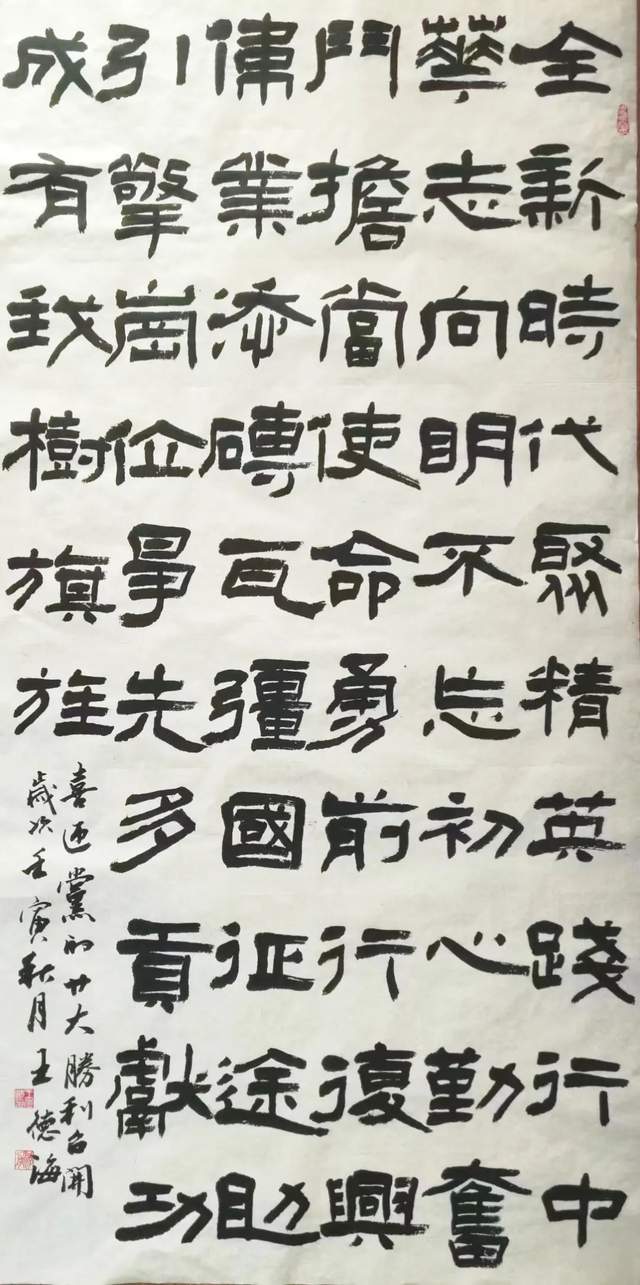 全新時代聚精英踐行中
華志向明不忘初心勤奮
鬥擔當使命勇前行復興
偉業添磚瓦彊國征途助
引擎崗位爭先多貢獻功
成有我樹旗旌
喜迎黨的廿大勝利召開
歲次壬寅秋月王德海